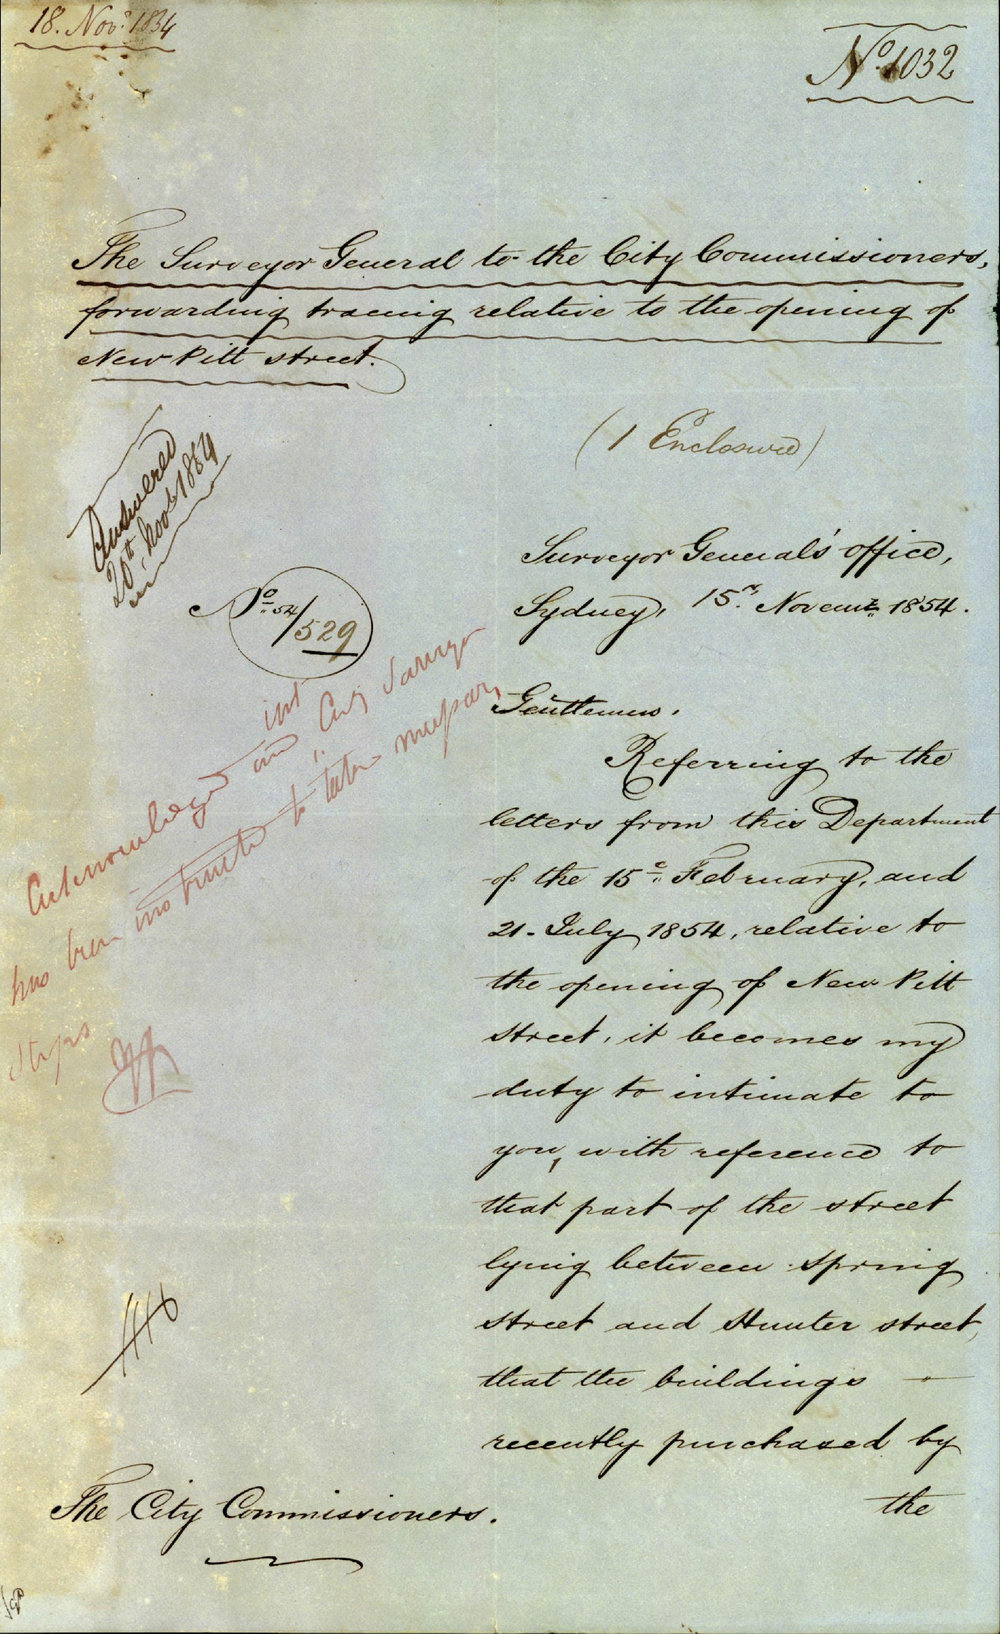 18. Novr. 1854
No. 1032
The Surveyor General to the City Commissioners,
forwarding tracing relative to the opening of
New Pitt street.
(1 Enclosure)
Answered
20th Novr 1854
Surveyor General's office,
Sydney, 15th. Novemr. 1854.
No. 54/529
Gentlemen.
Referring to the
letters from this Department
of the 15th February, and
21. July 1854, relative to
the opening of New Pitt
street, it becomes my
duty to intimate to
you, with reference to
that part of the street
lying between Spring
street and Hunter street,
that the buildings
recently purchased by
the
Acknowledged and City Surveyor
has been instructed to take necessary
steps
The City Commissioners.